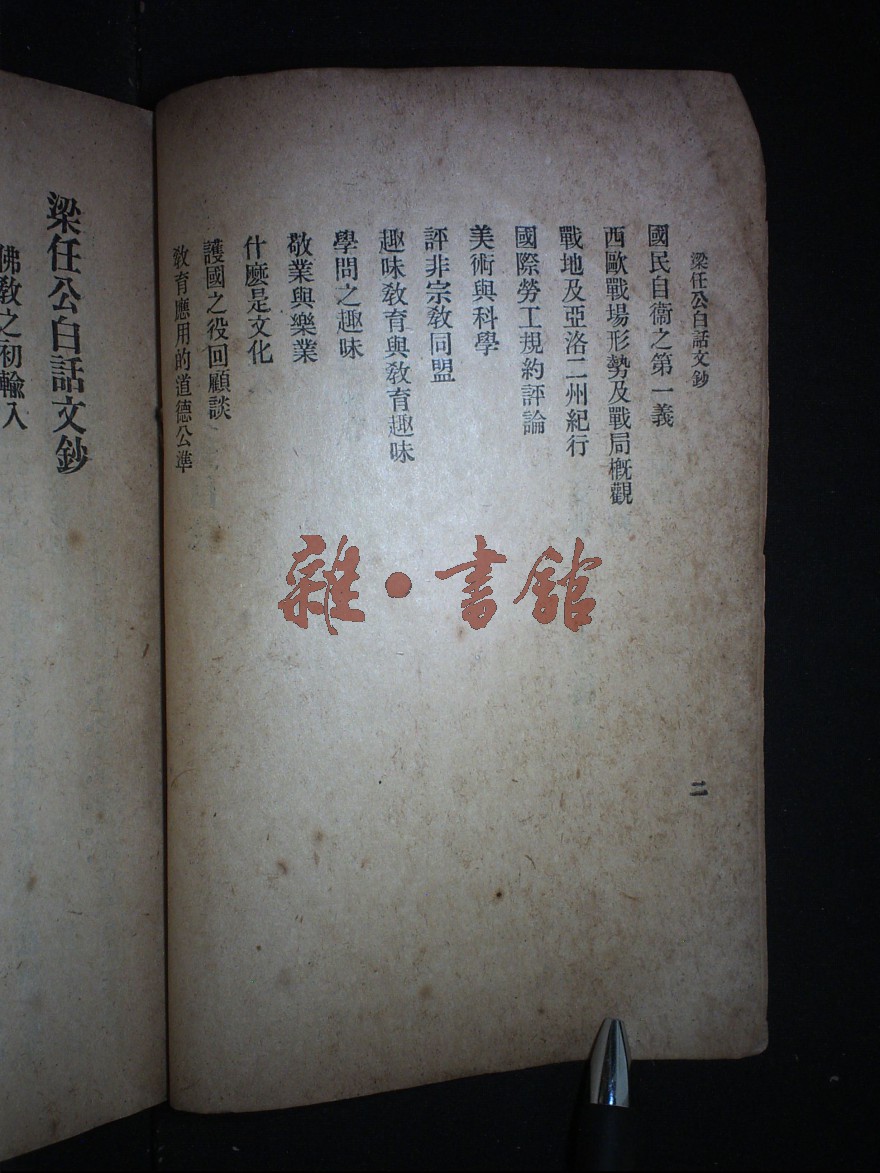 梁任公白話文鈔
國民自衞之第一義
西歐戰場形勢及戰局槪觀
戰地及亞洛二州紀行
國際勞工規約評論
美術與科學
評非宗敎同盟
趣味敎育與敎育趣味
學問之趣味
敬業與樂業
什麽是文化
護國之役回顧談
敎育應用的道德公準
二
雜·書館
梁任公白話文鈔
佛敎之初輸入